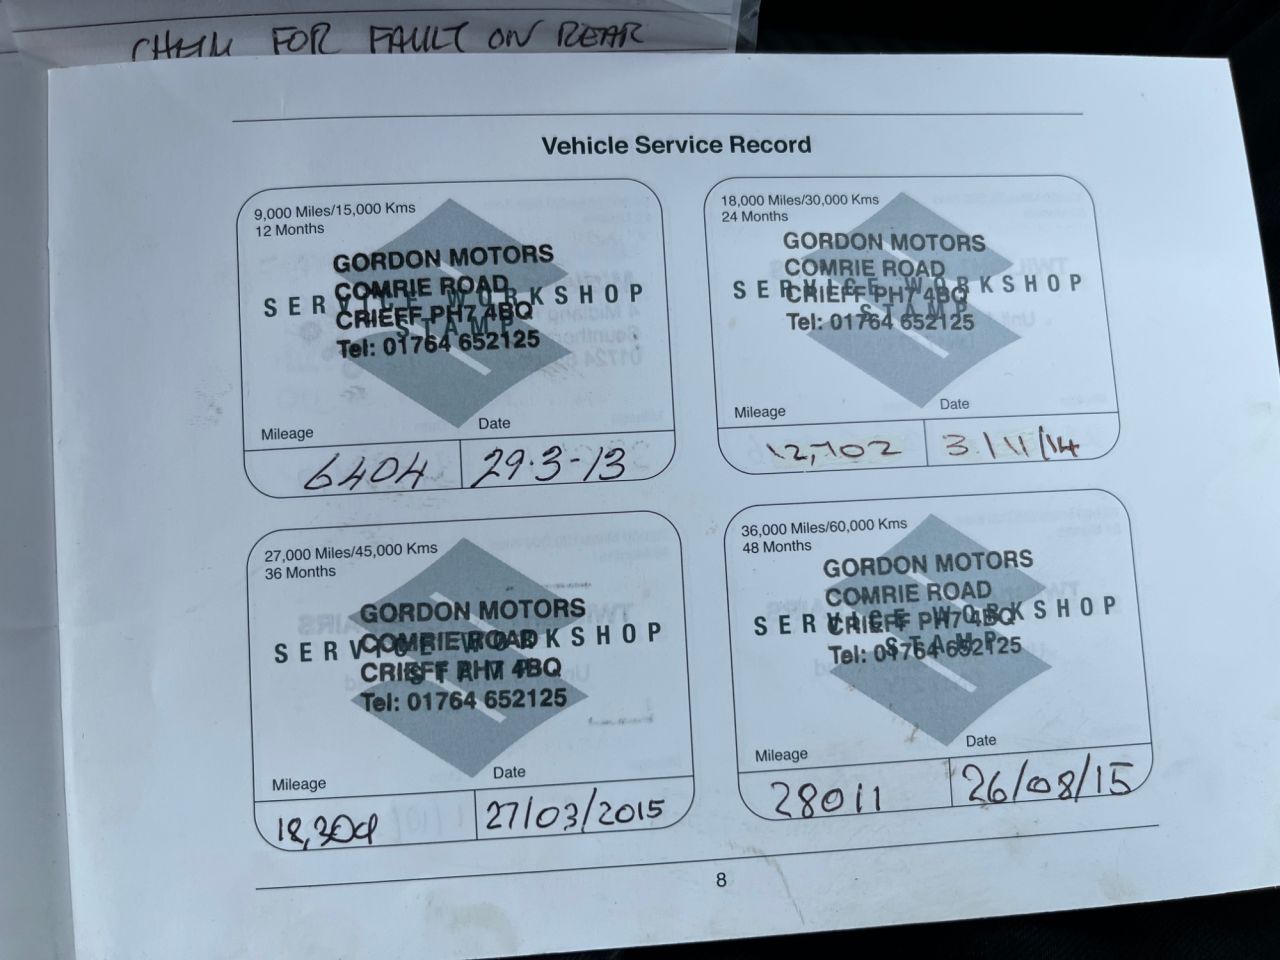 FOR FAULT ON REAR
Vehicle Service Record
9,000 Miles/15,000 Kms
12 Months
GORDON MOTORS
COMRIE ROAD
SERVICE WORKSHOP
CRIEFF PH7 4BQ
STAMP
Tel: 01764 652125
Mileage
Date
6404
29.3-13
18,000 Miles/30,000 Kms
24 Months
GORDON MOTORS
COMRIE ROAD
SERVICE WORKSHOP
CRIEFF PH7 4BQ
STAMP
Tel: 01764 652125
Mileage
Date
12,702
3/11/14
27,000 Miles/45,000 Kms
36 Months
GORDON MOTORS
COMRIE ROAD
SERVICE WORKSHOP
CRIEFF PH7 4BQ
STAMP
Tel: 01764 652125
Mileage
Date
27/03/2015
36,000 Miles/60,000 Kms
48 Months
GORDON MOTORS
COMRIE ROAD
SERVICE WORKSHOP
CRIEFF PH7 4BQ
STAMP
Tel: 01764 652125
Mileage
Date
28011
26/08/15
8